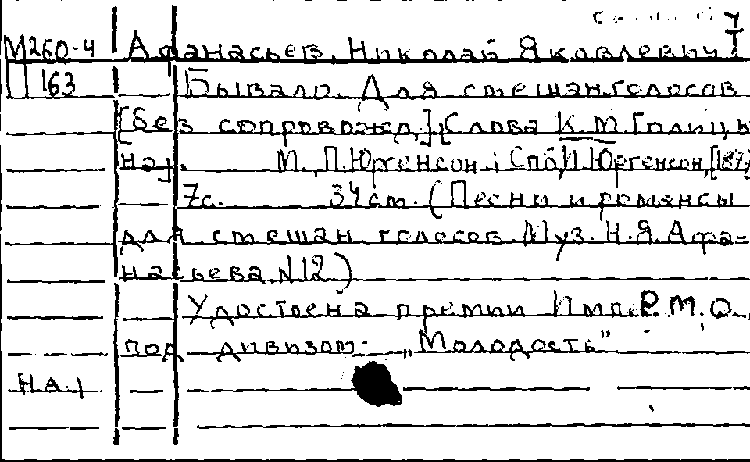 М260-4 Афанасьев, Николай Яковлевич
П 163 Бывало. Для смешан. голосов
[без сопровожд.] [Слова К.М. Голицы-
на]. М., П. Юргенсон; Спб, И. Юргенсон, [187
7с. 34 см. (Песни и романсы
для смешан голосов. Муз. Н.Я. Афа-
насьева. N12)
Удостоена премии Имп. Р.М.О.
под дивизом: „Молодость"
НА1